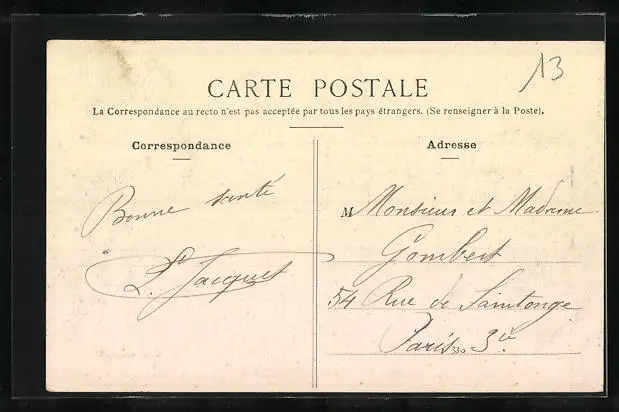 13
CARTE POSTALE
La Correspondance au recto n'est pas acceptée par tous les pays étrangers. (Se renseigner à la Poste).
Correspondance
Bonne santé
L. Jacquet
Adresse
M Monsieur et Madame
Gombert
54 Rue de Saintonge
Paris 3e